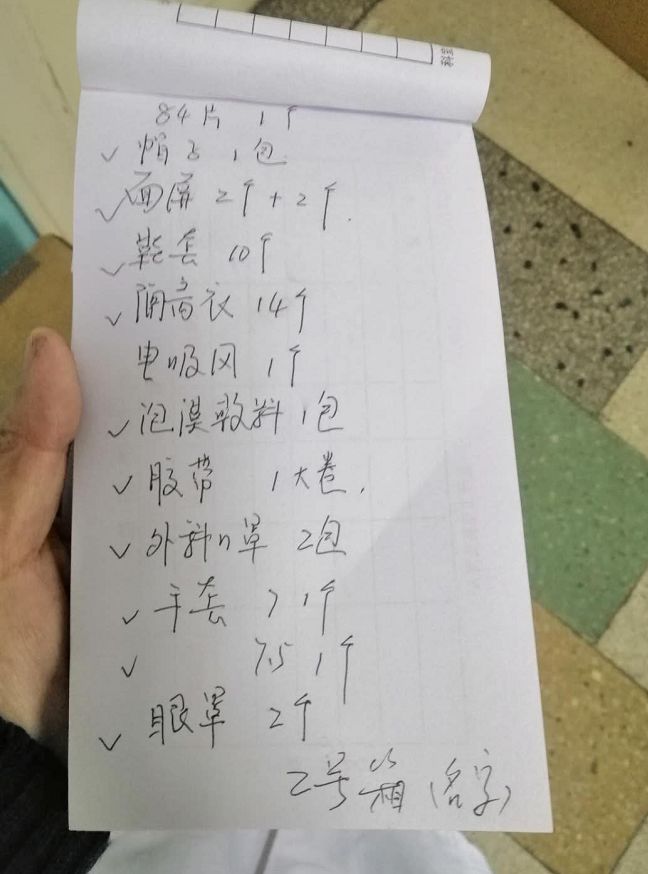 84片 1个
✓ 帽子 1包
✓ 面屏 2个+2个.
✓ 靴套 10个
✓ 隔离衣 14个
电吸风 1个
✓ 泡沫敷料 1包
✓ 胶带 1大卷.
✓ 外科口罩 2包
✓ 手套 7 1个
✓ 7.5 1个
✓ 眼罩 2个
2号箱(名字)